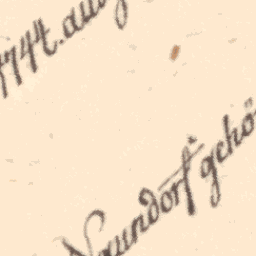 1744. auf
Naundorf gehö